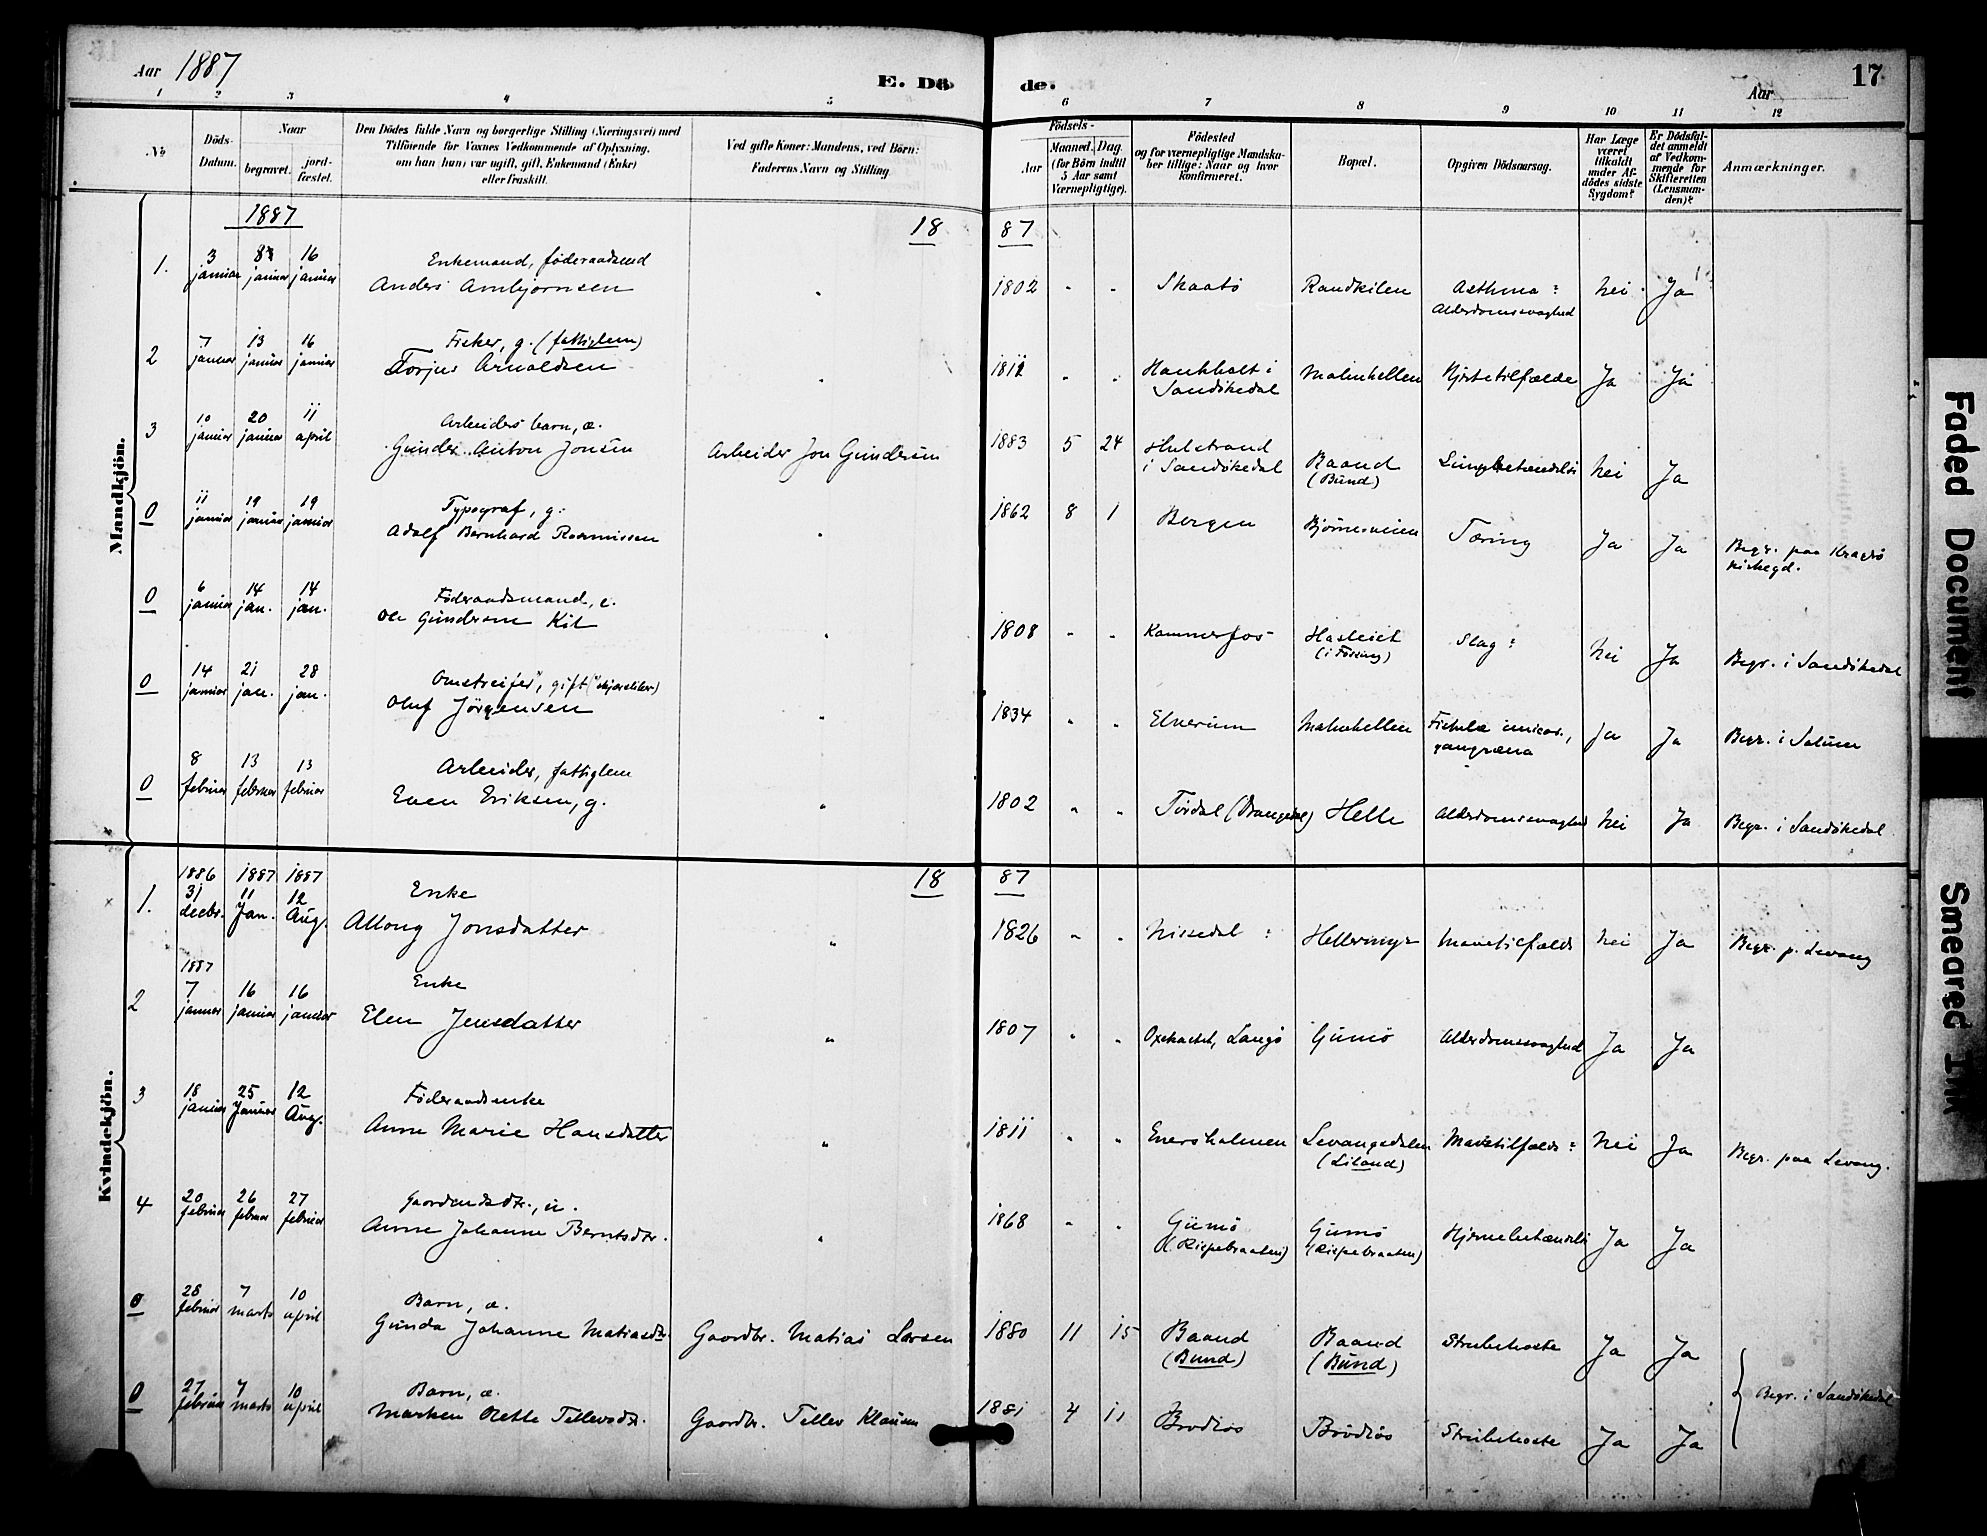 Aar 1887
E. Dö de.
Aar
17
1 2 3 4 5 6 7 8 9 10 11 12
No
Döds-Datum.
Naar
begravet.
jord-fæstet.
Den Dödes fulde Navn og borgerlige Stilling (Næringsvei) med
Tilföiende for Voxnes Vedkommende af Oplysning,
om han (hun) var ugift, gift, Enkemand (Enke)
eller fraskilt.
Ved gifte Koner: Mandens, ved Börn:
Faderens Navn og Stilling.
Födsels-
Aar
Maaned. Dag.
(for Börn indtil
5 Aar samt
Værnepligtige).
Födested
og for værnepligtige Mandska-
ber tillige: Naar og hvor
konfirmeret.
Bopæl.
Opgiven Dödsaarsag.
Har Læge
været
tilkaldt
under Af-
dödes sidste
Sygdom?
Er Dödsfal-
det anmeldt
af Vedkom-
mende for
Skifteretten
(Lensman-
den)?
Anmærkninger.
Mandkjön.
1887
18 87
1. 3 januar 8 januar 16 januar Enkemand, föderaadsmd
Anders Ambjørnsen " 1802 " " Skaatö Randkilen Asthma? Alderdomssvaghed Nei Ja
2 7 januar 13 januar 16 januar Fisker, g. (fattiglem)
Torjus Arnoldsen " 1812 " " i Sandökedal Malmhellen Hjertetilfælde Ja Ja
3 10 januar 20 januar 11 april Arbeiders barn, æ.
Gunder Anton Jonsen Arbeider Jon Gundersen 1883 5 24 i Sandökedal Baand (Bund) Nei Ja
0 11 januar 19 januar 19 januar Typograf, g.
Adolf Bernhard Rasmussen " 1862 8 1 Bergen Tæring Ja Ja Begr. paa Kragerö kirkegd.
0 6 januar 14 jan. 14 jan. Föderaadsmand, e.
Ole Gundersen Kil " 1808 " " Kammerfos Slag? Nei Ja Begr. i Sandökedal
0 14 januar 21 jan. 28 jan. Omstreifer, gift
Oluf Jörgensen " 1834 " " Elverum Malmhellen gangræna Ja Ja Begr. i Solum
0 8 februar 13 februar 13 februar Arbeider, fattiglem
Even Eriksen, g. " 1802 " " Tördal (Drangedal) Helle Alderdomssvaghed Nei Ja Begr. i Sandökedal
Kvindekjön.
18 87
1. 1886 31 decbr. 1887 11 Jan. 1887 12 Aug. Enke
Allong Jonsdatter " 1826 " " Nissedal? Mavetilfælde Nei Ja Begr. p. Levang
2 1887 7 januar 16 januar 16 januar Enke
Elen Jensdatter " 1807 " " Langö Gumö Alderdomssvaghed Ja Ja
3 18 januar 25 Januar 12 Aug. Föderaadsenke
Anne Marie Hansdatter " 1811 " " Levangsdalen (Liland) Mavetilfælde? Nei Ja Begr. paa Levang.
4 20 februar 26 februar 27 februar Gaardmdsdtr., u.
Anne Johanne Berntsdtr. " 1868 " " Gumö (Rispebraaten) Gumö (Rispebraaten) Hjernebetændelse Ja Ja
0 28 februar 7 marts 10 april Barn, æ.
Gunda Johanne Matiasdtr. Gaardbr. Matias Larsen 1880 11 15 Baand (Bund) Baand (Bund) Strubehoste Ja Ja
0 27 februar 7 marts 10 april Barn, æ.
Maren Tellevsdtr. Gaardbr. Tellev Klausen 1881 4 11 Strubehoste Ja Ja Begr. i Sandökedal
Faded Document
Smeared Ink